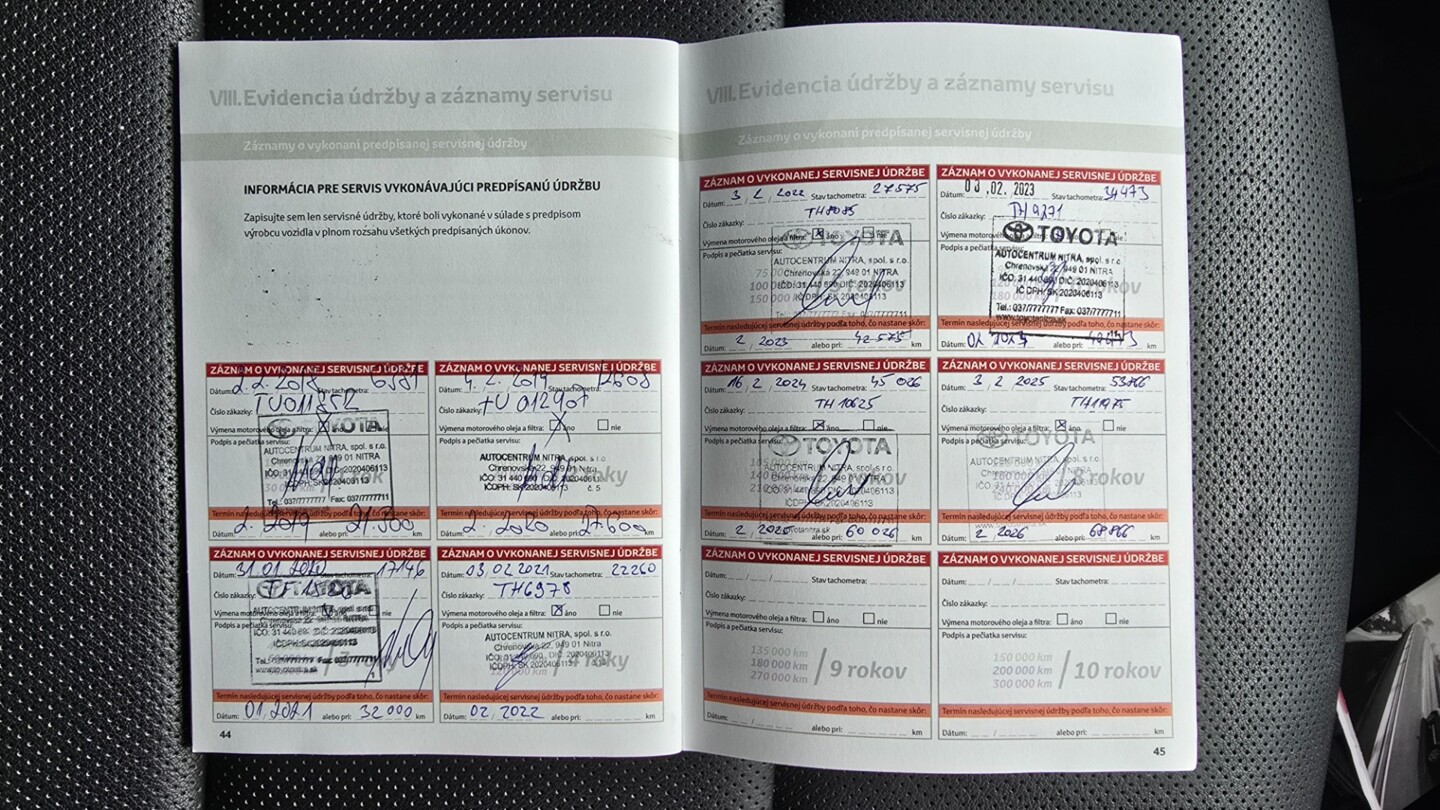 VIII. Evidencia údržby a záznamy servisu
Záznamy o vykonaní predpísanej servisnej údržby
INFORMÁCIA PRE SERVIS VYKONÁVAJÚCI PREDPÍSANÚ ÚDRŽBU
Zapisujte sem len servisné údržby, ktoré boli vykonané v súlade s predpisom
výrobcu vozidla v plnom rozsahu všetkých predpísaných úkonov.
ZÁZNAM O VYKONANEJ SERVISNEJ ÚDRŽBE
Dátum: 2. 2. 2018 Stav tachometra:
Číslo zákazky:
Výmena motorového oleja a filtra: áno
Podpis a pečiatka servisu:
AUTOCENTRUM NITRA, spol. s r.o.
Chrenovská 22, 949 01 NITRA
IČO: 31 440 690 DIČ: 2020406113
IČDPH: SK 2020406113
Tel.: 037/7777777 Fax: 037/7777711
Termín nasledujúcej servisnej údržby podľa toho, čo nastane skôr:
Dátum: 2. 2019 alebo pri: km
ZÁZNAM O VYKONANEJ SERVISNEJ ÚDRŽBE
Dátum: 4. 2. 2019 Stav tachometra: 12608
Číslo zákazky: TU 012907
Výmena motorového oleja a filtra: áno nie
Podpis a pečiatka servisu:
AUTOCENTRUM NITRA, spol. s r.o.
Chrenovská 22, 949 01 Nitra
IČO: 31 440 690 DIČ: 2020406113
IČDPH: SK 2020406113 č. 5
roky
Termín nasledujúcej servisnej údržby podľa toho, čo nastane skôr:
Dátum: 2. 2020 alebo pri: 27600 km
ZÁZNAM O VYKONANEJ SERVISNEJ ÚDRŽBE
Dátum: 31. 01. 2020 Stav tachometra: 17146
Číslo zákazky:
Výmena motorového oleja a filtra:
Podpis a pečiatka servisu:
Termín nasledujúcej servisnej údržby podľa toho, čo nastane skôr:
Dátum: 01 2021 alebo pri: 32 000 km
ZÁZNAM O VYKONANEJ SERVISNEJ ÚDRŽBE
Dátum: 03. 02 2021 Stav tachometra: 22260
Číslo zákazky: TH6978
Výmena motorového oleja a filtra: áno nie
Podpis a pečiatka servisu:
AUTOCENTRUM NITRA, spol. s r.o.
Chrenovská 22, 949 01 Nitra
IČO: 31 440 690 DIČ: 2020406113
IČDPH: SK 2020406113
4 roky
Termín nasledujúcej servisnej údržby podľa toho, čo nastane skôr:
Dátum: 02. 2022 alebo pri: km
44
VIII. Evidencia údržby a záznamy servisu
Záznamy o vykonaní predpísanej servisnej údržby
ZÁZNAM O VYKONANEJ SERVISNEJ ÚDRŽBE
Dátum: 3 / 2 / 2022 Stav tachometra: 27575
Číslo zákazky: TH8085
Výmena motorového oleja a filtra: áno
Podpis a pečiatka servisu:
TOYOTA
AUTOCENTRUM NITRA, spol. s r.o.
Chrenovská 22, 949 01 NITRA
IČO: 31 440 690 DIČ: 2020406113
IČ DPH: SK 2020406113
Tel.: 037/7777777 Fax: 037/7777711
rokov
Termín nasledujúcej servisnej údržby podľa toho, čo nastane skôr:
Dátum: 2 / 2023 alebo pri: 42 575 km
ZÁZNAM O VYKONANEJ SERVISNEJ ÚDRŽBE
Dátum: 03 .02. 2023 Stav tachometra: 34473
Číslo zákazky: TH9271
Výmena motorového oleja a filtra:
TOYOTA
AUTOCENTRUM NITRA, spol. s r.o.
Chrenovská 22, 949 01 NITRA
IČO: 31 440 690 DIČ: 2020406113
IČ DPH: SK 2020406113
Tel.: 037/7777777 Fax: 037/7777711
rokov
Termín nasledujúcej servisnej údržby podľa toho, čo nastane skôr:
Dátum: alebo pri: km
ZÁZNAM O VYKONANEJ SERVISNEJ ÚDRŽBE
Dátum: 16 / 2 / 2024 Stav tachometra: 45 026
Číslo zákazky: TH 10625
Výmena motorového oleja a filtra: áno nie
Podpis a pečiatka servisu:
TOYOTA
AUTOCENTRUM NITRA, spol. s r.o.
Chrenovská 22, 949 01 NITRA
rokov
Termín nasledujúcej servisnej údržby podľa toho, čo nastane skôr:
Dátum: 2 / 2025 alebo pri: 60 026 km
ZÁZNAM O VYKONANEJ SERVISNEJ ÚDRŽBE
Dátum: 3 / 2 / 2025 Stav tachometra: 53866
Číslo zákazky: TH11975
Výmena motorového oleja a filtra: áno nie
Podpis a pečiatka servisu:
TOYOTA
AUTOCENTRUM NITRA, spol. s r.o.
rokov
Termín nasledujúcej servisnej údržby podľa toho, čo nastane skôr:
Dátum: 2 / 2026 alebo pri: 68866 km
ZÁZNAM O VYKONANEJ SERVISNEJ ÚDRŽBE
Dátum: / / Stav tachometra:
Číslo zákazky:
Výmena motorového oleja a filtra: áno nie
Podpis a pečiatka servisu:
135 000 km
180 000 km / 9 rokov
270 000 km
Termín nasledujúcej servisnej údržby podľa toho, čo nastane skôr:
Dátum: / alebo pri: km
ZÁZNAM O VYKONANEJ SERVISNEJ ÚDRŽBE
Dátum: / / Stav tachometra:
Číslo zákazky:
Výmena motorového oleja a filtra: áno nie
Podpis a pečiatka servisu:
150 000 km
200 000 km / 10 rokov
300 000 km
Termín nasledujúcej servisnej údržby podľa toho, čo nastane skôr:
Dátum: / alebo pri: km
45